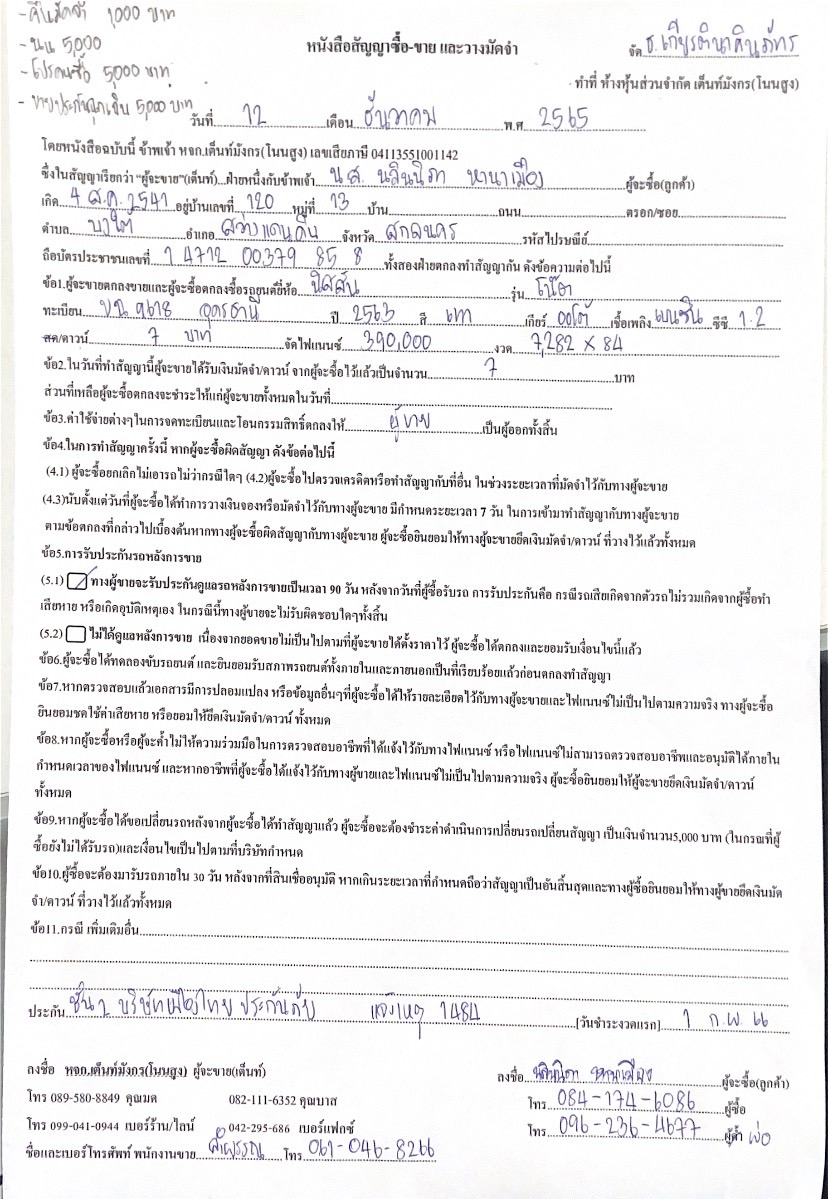 - คืนมัดจำ 1,000 บาท
- นน 5,000
- โปรคนซื้อ 5,000 บาท
- ขายประกันฉุกเฉิน 5,000 บาท
หนังสือสัญญาซื้อ-ขาย และวางมัดจำ
จัด ธ.เกียรตินาคินภัทร
ทำที่ ห้างหุ้นส่วนจำกัด เต็นท์มังกร(โนนสูง)
วันที่ 12 เดือน ธันวาคม พ.ศ 2565
โดยหนังสือฉบับนี้ ข้าพเจ้า หจก.เต็นท์มังกร(โนนสูง) เลขเสียภาษี 04113551001142
ซึ่งในสัญญาเรียกว่า "ผู้จะขาย"(เต็นท์)...ฝ่ายหนึ่งกับข้าพเจ้า น.ส. นลินนิภา หานาเมือง ผู้จะซื้อ(ลูกค้า)
เกิด 4 ส.ค. 2541 อยู่บ้านเลขที่ 120 หมู่ที่ 13 บ้าน ถนน ตรอก/ซอย
ตำบล บาใต้ อำเภอ สว่างแดนดิน จังหวัด สกลนคร รหัสไปรษณีย์
ถือบัตรประชาชนเลขที่ 1 4712 00379 85 8 ทั้งสองฝ่ายตกลงทำสัญญากัน ดังข้อความต่อไปนี้
ข้อ1.ผู้จะขายตกลงขายและผู้จะซื้อตกลงซื้อรถยนต์ยี่ห้อ นิสสัน รุ่น โน๊ต
ทะเบียน ขน 9618 อุดรธานี ปี 2563 สี เทา เกียร์ ออโต้ เชื้อเพลิง เบนซิน ซีซี 1.2
สด/ดาวน์ 7 บาท จัดไฟแนนซ์ 390,000 งวด 7,282 × 84
ข้อ2.ในวันที่ทำสัญญานี้ผู้จะขายได้รับเงินมัดจำ/ดาวน์ จากผู้จะซื้อไว้แล้วเป็นจำนวน 7 บาท
ส่วนที่เหลือผู้จะซื้อตกลงจะชำระให้แก่ผู้จะขายทั้งหมดในวันที่
ข้อ3.ค่าใช้จ่ายต่างๆในการจดทะเบียนและโอนกรรมสิทธิ์ตกลงให้ ผู้ขาย เป็นผู้ออกทั้งสิ้น
ข้อ4.ในการทำสัญญาครั้งนี้ หากผู้จะซื้อผิดสัญญา ดังข้อต่อไปนี้
(4.1) ผู้จะซื้อยกเลิกไม่เอารถไม่ว่ากรณีใดๆ (4.2)ผู้จะซื้อไปตรวจเครดิตหรือทำสัญญากับที่อื่น ในช่วงระยะเวลาที่มัดจำไว้กับทางผู้จะขาย
(4.3)นับตั้งแต่วันที่ผู้จะซื้อได้ทำการวางเงินจองหรือมัดจำไว้กับทางผู้จะขาย มีกำหนดระยะเวลา 7 วัน ในการเข้ามาทำสัญญากับทางผู้จะขาย
ตามข้อตกลงที่กล่าวไปเบื้องต้นหากทางผู้จะซื้อผิดสัญญากับทางผู้จะขาย ผู้จะซื้อยินยอมให้ทางผู้จะขายยึดเงินมัดจำ/ดาวน์ ที่วางไว้แล้วทั้งหมด
ข้อ5.การรับประกันรถหลังการขาย
(5.1) ทางผู้ขายจะรับประกันดูแลรถหลังการขายเป็นเวลา 90 วัน หลังจากวันที่ผู้ซื้อรับรถ การรับประกันคือ กรณีรถเสียเกิดจากตัวรถไม่รวมเกิดจากผู้ซื้อทำ
เสียหาย หรือเกิดอุบัติเหตุเอง ในกรณีนี้ทางผู้ขายจะไม่รับผิดชอบใดๆทั้งสิ้น
(5.2) ไม่ได้ดูแลหลังการขาย เนื่องจากยอดขายไม่เป็นไปตามที่ผู้จะขายได้ตั้งราคาไว้ ผู้จะซื้อได้ตกลงและยอมรับเงื่อนไขนี้แล้ว
ข้อ6.ผู้จะซื้อได้ทดลองขับรถยนต์ และยินยอมรับสภาพรถยนต์ทั้งภายในและภายนอกเป็นที่เรียบร้อยแล้วก่อนตกลงทำสัญญา
ข้อ7.หากตรวจสอบแล้วเอกสารมีการปลอมแปลง หรือข้อมูลอื่นๆที่ผู้จะซื้อได้ให้รายละเอียดไว้กับทางผู้จะขายและไฟแนนซ์ไม่เป็นไปตามความจริง ทางผู้จะซื้อ
ยินยอมชดใช้ค่าเสียหาย หรือยอมให้ยึดเงินมัดจำ/ดาวน์ ทั้งหมด
ข้อ8.หากผู้จะซื้อหรือผู้จะค้ำไม่ให้ความร่วมมือในการตรวจสอบอาชีพที่ได้แจ้งไว้กับทางไฟแนนซ์ หรือไฟแนนซ์ไม่สามารถตรวจสอบอาชีพและอนุมัติได้ภายใน
กำหนดเวลาของไฟแนนซ์ และหากอาชีพที่ผู้จะซื้อได้แจ้งไว้กับทางผู้ขายและไฟแนนซ์ไม่เป็นไปตามความจริง ผู้จะซื้อยินยอมให้ผู้จะขายยึดเงินมัดจำ/ดาวน์
ทั้งหมด
ข้อ9.หากผู้จะซื้อได้ขอเปลี่ยนรถหลังจากผู้จะซื้อได้ทำสัญญาแล้ว ผู้จะซื้อจะต้องชำระค่าดำเนินการเปลี่ยนรถเปลี่ยนสัญญา เป็นเงินจำนวน5,000 บาท (ในกรณีที่ผู้
ซื้อยังไม่ได้รับรถ)และเงื่อนไขเป็นไปตามที่บริษัทกำหนด
ข้อ10.ผู้ซื้อจะต้องมารับรถภายใน 30 วัน หลังจากที่สินเชื่ออนุมัติ หากเกินระยะเวลาที่กำหนดถือว่าสัญญาเป็นอันสิ้นสุดและทางผู้ซื้อยินยอมให้ทางผู้ขายยึดเงินมัด
จำ/ดาวน์ ที่วางไว้แล้วทั้งหมด
ข้อ11.กรณี เพิ่มเติมอื่น
ประกัน ชั้น 2 บริษัทเมืองไทย ประกันภัย แจ้งเหตุ 1484 [วันชำระงวดแรก] 1 ก.พ. 66
ลงชื่อ หจก.เต็นท์มังกร(โนนสูง) ผู้จะขาย(เต็นท์)
โทร 089-580-8849 คุณมด 082-111-6352 คุณบาส
โทร 099-041-0944 เบอร์ร้าน/ไลน์ 042-295-686 เบอร์แฟกซ์
ชื่อและเบอร์โทรศัพท์ พนักงานขาย ลำพรรณ โทร 061-046-8266
ลงชื่อ นลินนิภา หานาเมือง ผู้จะซื้อ(ลูกค้า)
โทร 084-174-6086 ผู้ซื้อ
โทร 096-236-4677 ผู้ค้ำ พ่อ